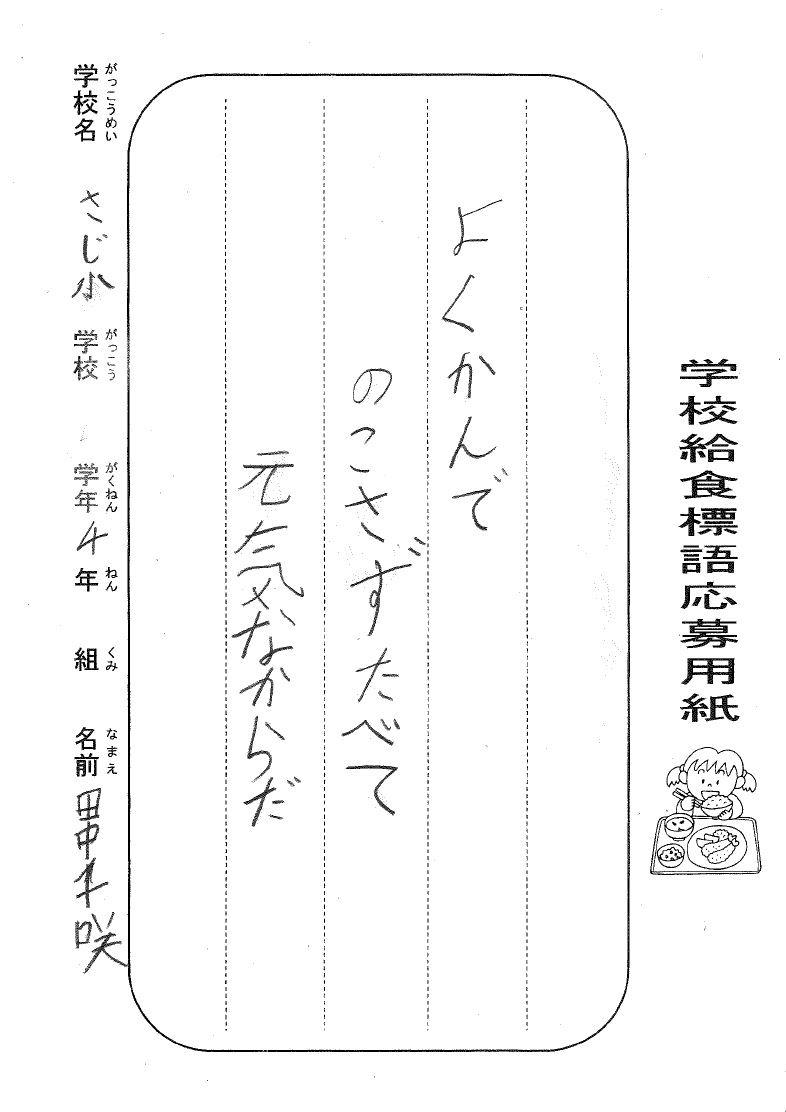 学校給食標語応募用紙
よくかんで
のこさずたべて
元気なからだ
学校名 さじ小 学校 学年 4年 組 名前 田中千咲
がっこうめい がっこう がくねん ねん くみ なまえ